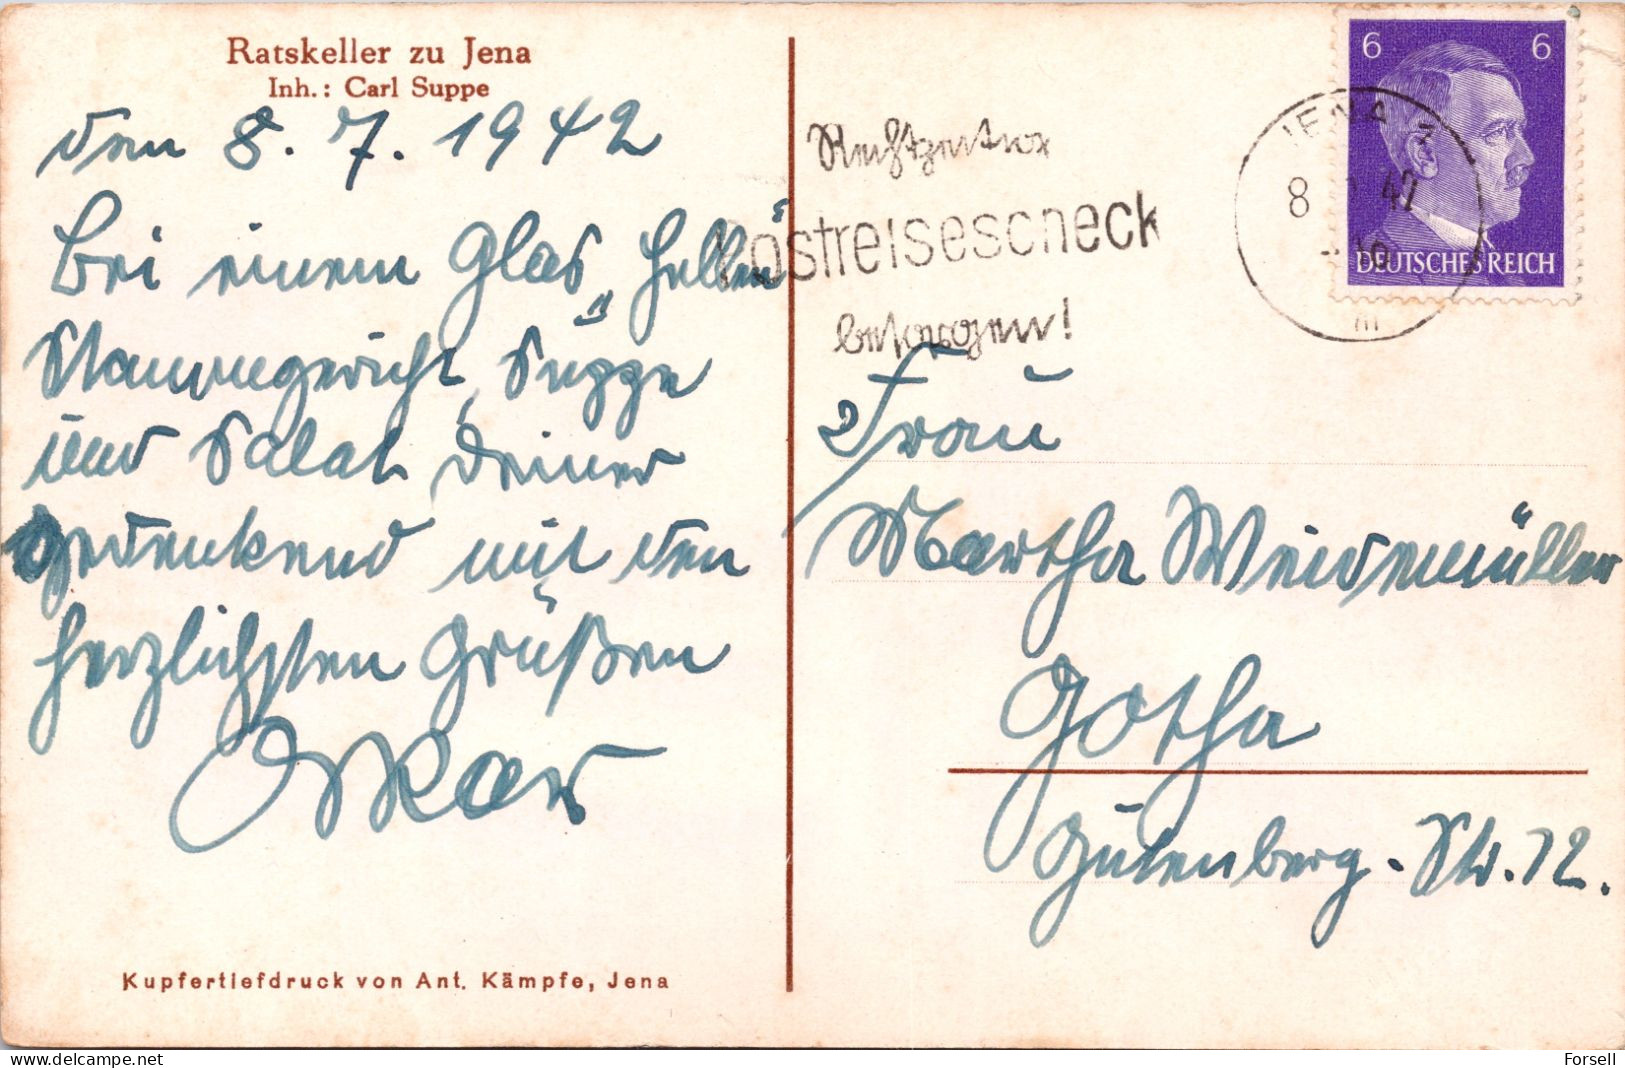 Ratskeller zu Jena
Inh.: Carl Suppe
den 8. 7. 1942
Bei einem Glas „Hellen“
Stammgericht, Suppe
und Salat Deiner
gedenkend mit den
herzlichsten Grüßen
Oskar
Kupfertiefdruck von Ant. Kämpfe, Jena
Rechtzeitig
Postreisescheck
besorgen!
JENA
8 42
6 6
DEUTSCHES REICH
Frau
Martha Weidemüller
Gotha
Gutenberg-Str. 12.
Forsell
delcampe.net